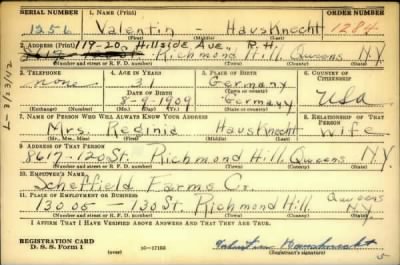 SERIAL NUMBER 1. NAME (Print) ORDER NUMBER
1256 Valentin HausKnecht 1284
(First) (Middle) (Last)
2. ADDRESS (Print) 119-20 Hillside Ave, R.H.
Richmond Hill Queens N.Y.
(Number and street or R. F. D. number) (Town) (County) (State)
3. TELEPHONE 4. AGE IN YEARS 5. PLACE OF BIRTH 6. COUNTRY OF CITIZENSHIP
none 31 Germany
DATE OF BIRTH
8-9-1909 Germany USA
(Exchange) (Number) (Mo.) (Day) (Yr.) (State or country)
7. NAME OF PERSON WHO WILL ALWAYS KNOW YOUR ADDRESS 8. RELATIONSHIP OF THAT PERSON
Mrs. Reginia HausKnecht Wife
(Mr., Mrs., Miss) (First) (Middle) (Last)
9. ADDRESS OF THAT PERSON
8617-120 St. Richmond Hill, Queens N.Y.
(Number and street or R. F. D. number) (Town) (County) (State)
10. EMPLOYER'S NAME
Scheffield Farms Co.
11. PLACE OF EMPLOYMENT OR BUSINESS Queens
13005-130 St. Richmond Hill NY.
(Number and street or R. F. D. number) (Town) (County) (State)
I AFFIRM THAT I HAVE VERIFIED ABOVE ANSWERS AND THAT THEY ARE TRUE.
REGISTRATION CARD
D. S. S. Form 1 (over) 16-17105 Valentin Hausknecht
L-3/23/42